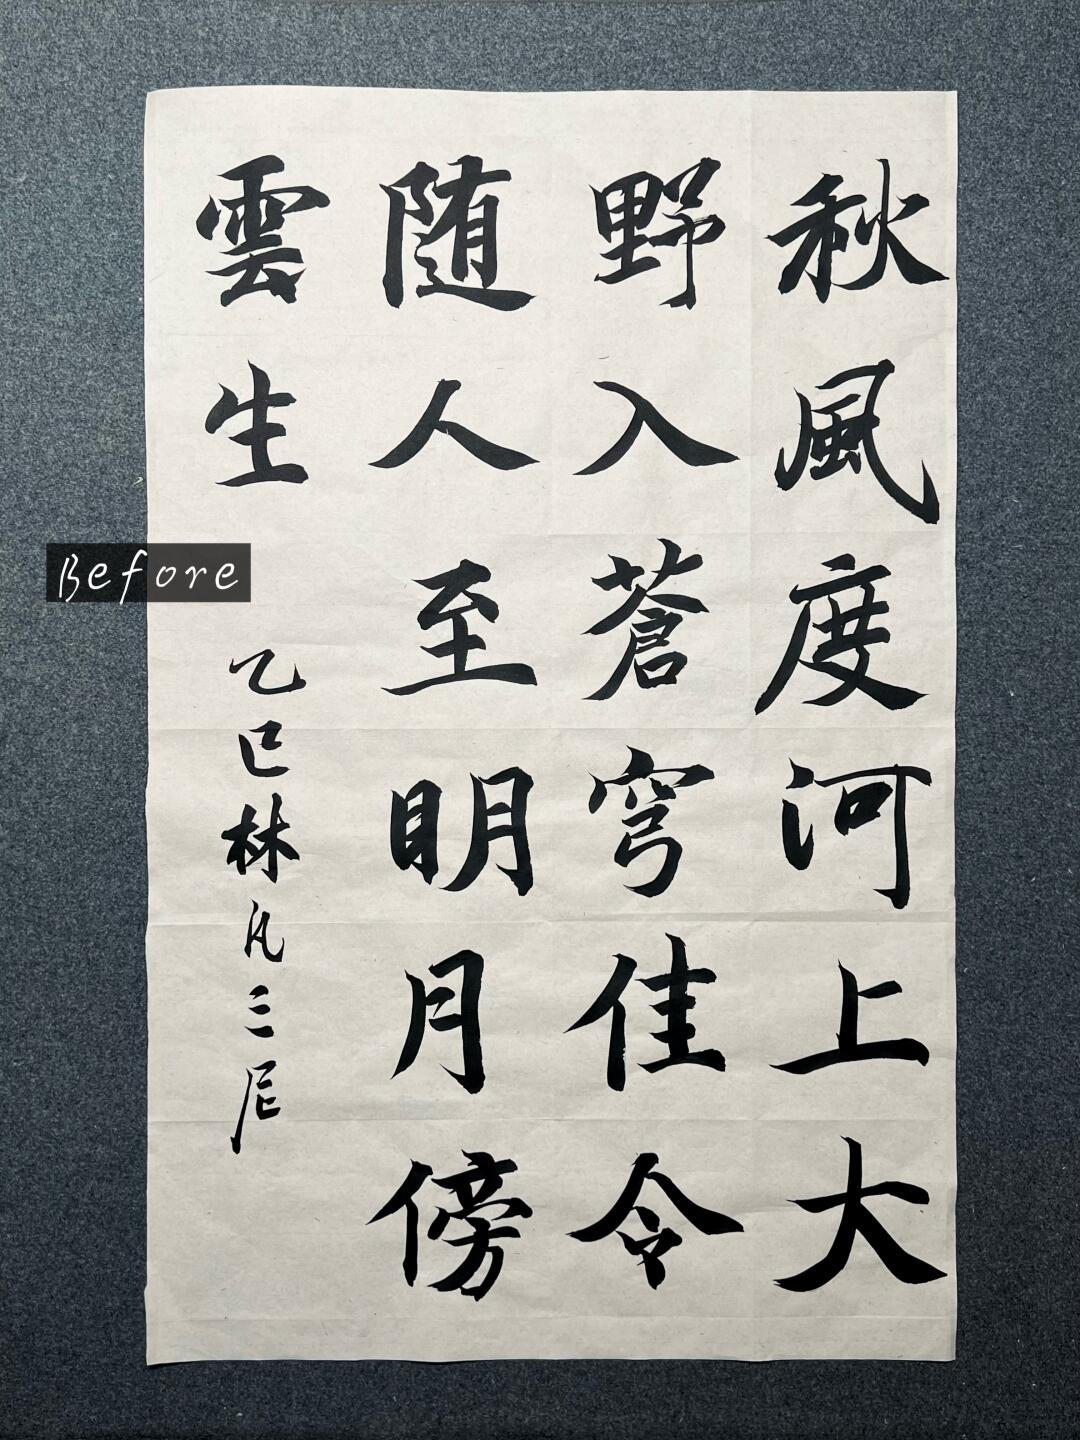 秋風度河上大
野入蒼穹佳令
随人至明月傍
雲生
乙巳林凡三尼
Before